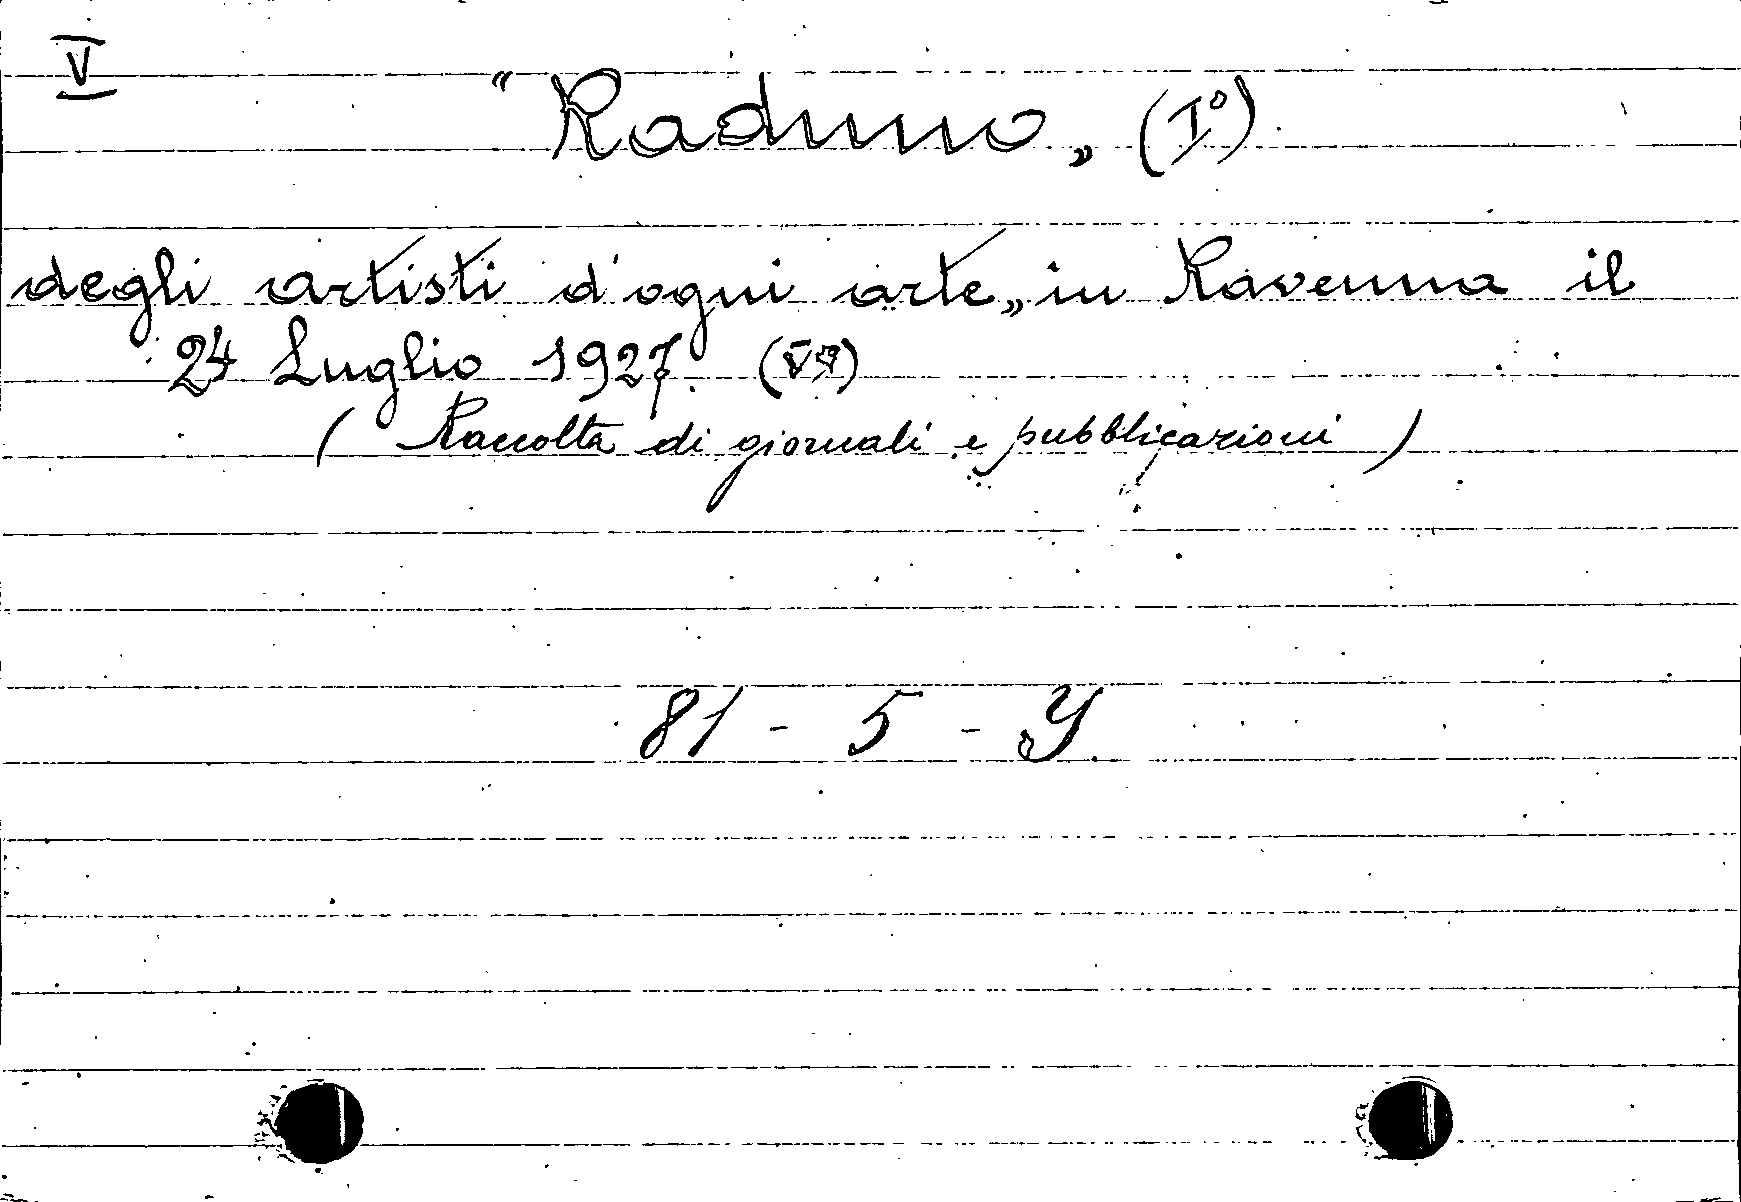 V
"Raduno„ (I°)
degli artisti d'ogni arte„ in Ravenna il
24 Luglio 1927. (V°)
( Raccolta di giornali e pubblicazioni )
81 - 5 - Y.